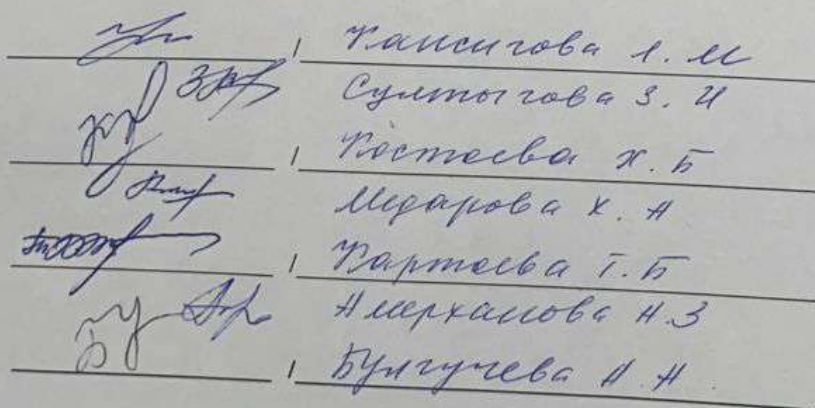 Кансигова Л. М
Султыгова З. И
Костоева Х. Б
Мерарова Х. А
Картоева Т. Б
Амерханова А.З
Булгучева А. А.